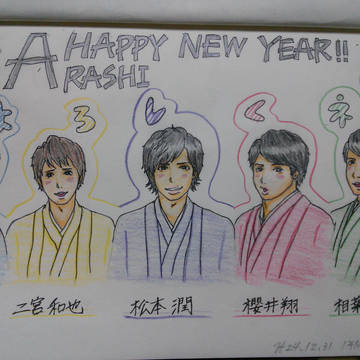 A HAPPY NEW YEAR!!
RASHI
よ ろ し く ネ
二宮 和也 松本 潤 櫻井 翔 相葉
H24.12.31